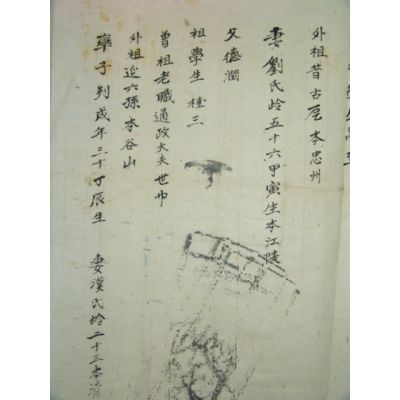 外祖昔古 本忠州
妻劉氏齡五十六甲寅生本江陵
父德潤
祖學生 三
曾祖老職通政大夫 世
外祖延六孫本谷山
率子判成年三十 辰生 妻漢氏齡二十三本清